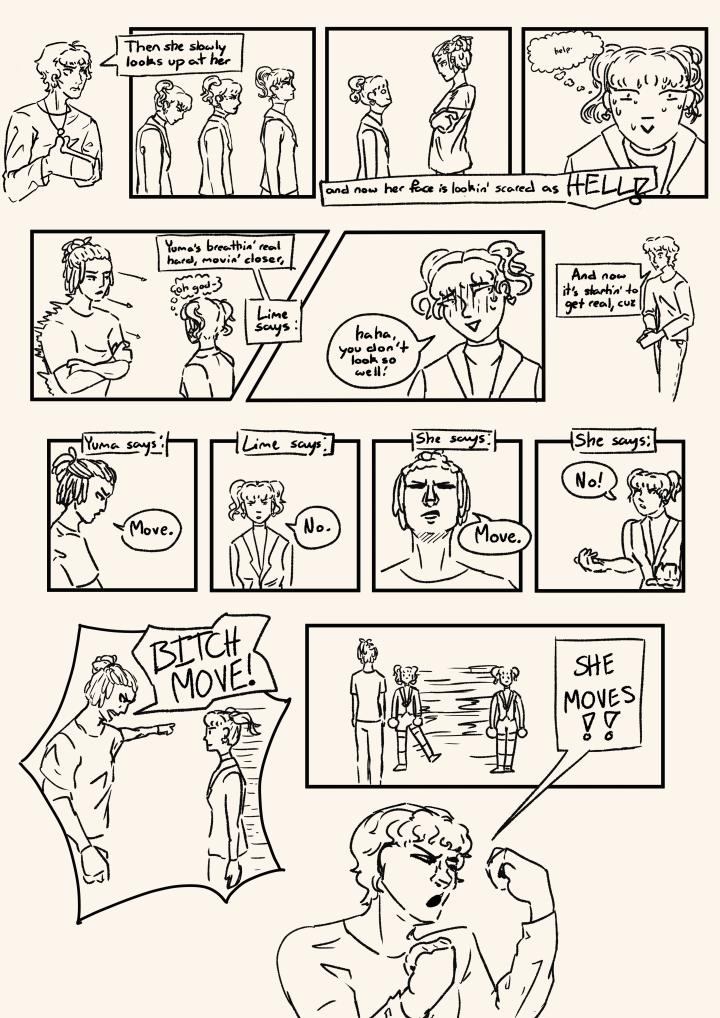 Then she slowly
looks up at her
help
and now her face is lookin' scared as HELL!
Yuma's breathin' real
hard, movin' closer,
oh god-
Lime
says:
haha,
you don't
look so
well!
And now
it's startin' to
get real, cuz
Yuma says:
Move.
Lime says:
No.
She says:
Move.
She says:
No!
BITCH
MOVE!
SHE
MOVES
!!